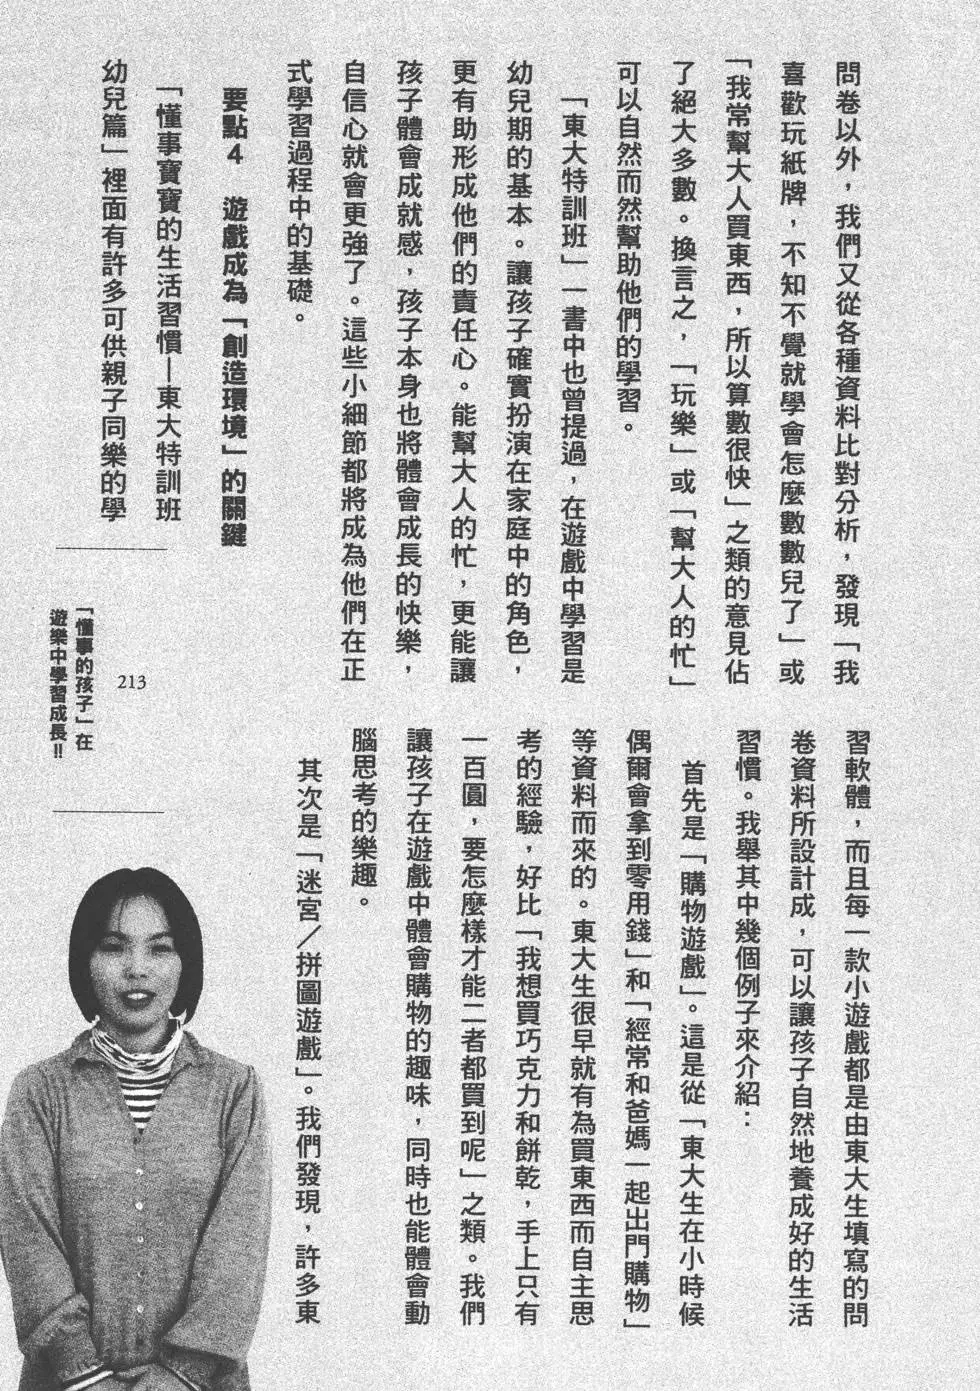 問卷以外，我們又從各種資料比對分析，發現「我
喜歡玩紙牌，不知不覺就學會怎麼數數兒了」或
「我常幫大人買東西，所以算數很快」之類的意見佔
了絕大多數。換言之，「玩樂」或「幫大人的忙」
可以自然而然幫助他們的學習。
「東大特訓班」一書中也曾提過，在遊戲中學習是
幼兒期的基本。讓孩子確實扮演在家庭中的角色，
更有助形成他們的責任心。能幫大人的忙，更能讓
孩子體會成就感，孩子本身也將體會成長的快樂，
自信心就會更強了。這些小細節都將成為他們在正
式學習過程中的基礎。
要點4　遊戲成為「創造環境」的關鍵
「懂事寶寶的生活習慣—東大特訓班
幼兒篇」裡面有許多可供親子同樂的學
習軟體，而且每一款小遊戲都是由東大生填寫的問
卷資料所設計成，可以讓孩子自然地養成好的生活
習慣。我舉其中幾個例子來介紹：
首先是「購物遊戲」。這是從「東大生在小時候
偶爾會拿到零用錢」和「經常和爸媽一起出門購物」
等資料而來的。東大生很早就有為買東西而自主思
考的經驗，好比「我想買巧克力和餅乾，手上只有
一百圓，要怎麼樣才能二者都買到呢」之類。我們
讓孩子在遊戲中體會購物的趣味，同時也能體會動
腦思考的樂趣。
其次是「迷宮／拼圖遊戲」。我們發現，許多東
213
「懂事的孩子」在
遊樂中學習成長!!